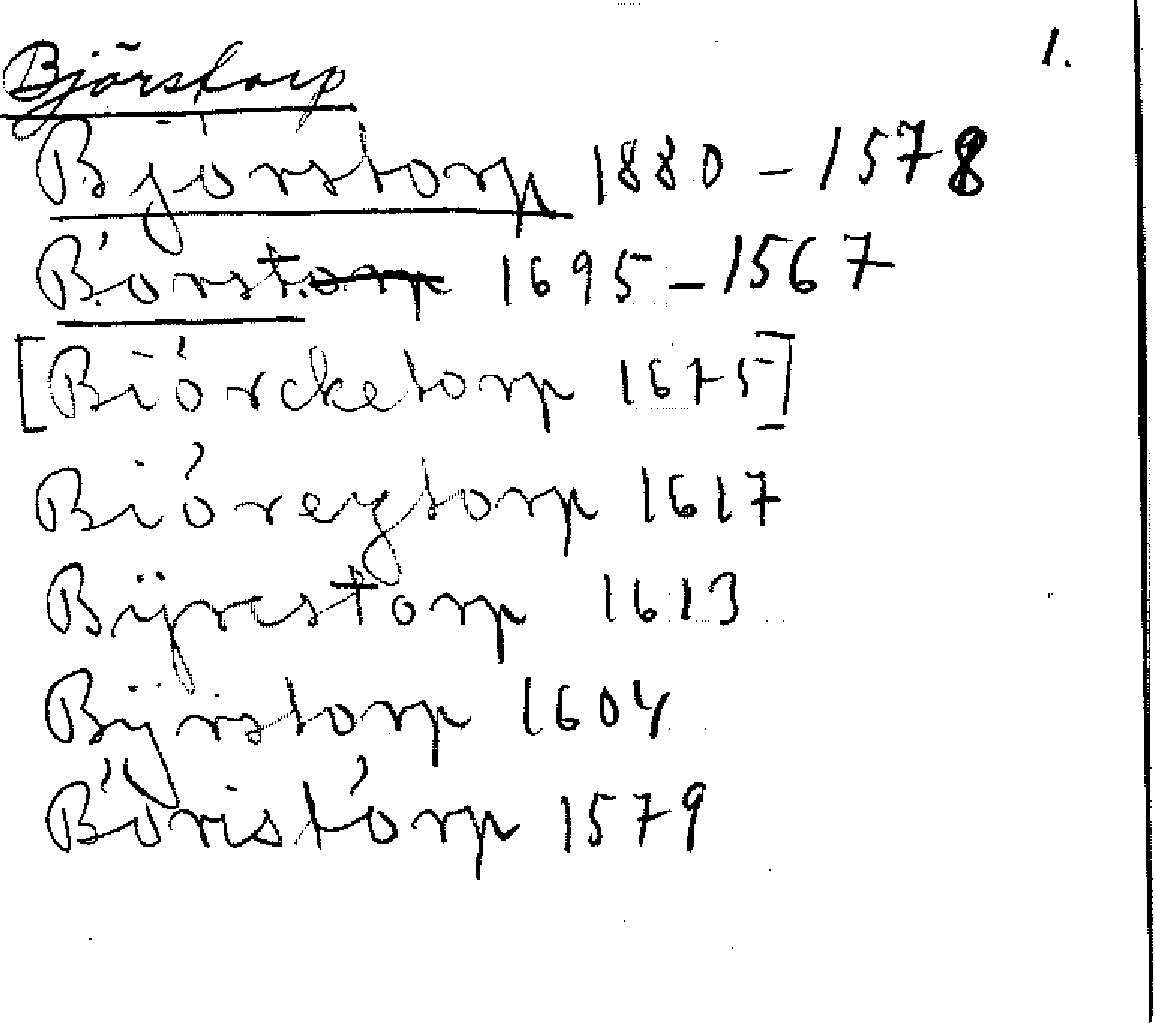 1.
Björstorp
Björstorp 1880 - 1578
Börstorp 1695 - 1567
[Biörcketorp 1675]
Biöreytorp 1617
Bijrestorp 1613
Bijrstorp 1604
Böristorp 1579